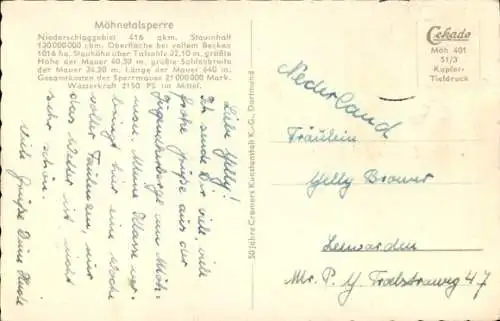 Möhnetalsperre
Niederschlagsgebiet 416 qkm. Stauinhalt
130000000 cbm. Oberfläche bei vollem Becken
1016 ha. Stauhöhe über Talsohle 32,10 m, größte
Höhe der Mauer 40,30 m, größte Sohlenbreite
der Mauer 34,20 m, Länge der Mauer 640 m,
Gesamtkosten der Sperrmauer 21000000 Mark.
Wasserkraft 2150 PS im Mittel.
Liebe Yelly!
Ich sende Dir viele, viele
frohe Grüße aus der
Jugendherberge am Möh-
nesee. Meine Klasse ver-
bringt hier eine Woche
voller Faulenzen, nur
das Wetter ist nicht
sehr schön.
Viele Grüße Deine
50 Jahre Cramers Kunstanstalt K.-G., Dortmund
Cekade
Möh 401
51/3
Kupfer-
Tiefdruck
Nederland
Fräulein
Yelly Brouwer
Leeuwarden
Mr. P. Y. Troelstraweg 47